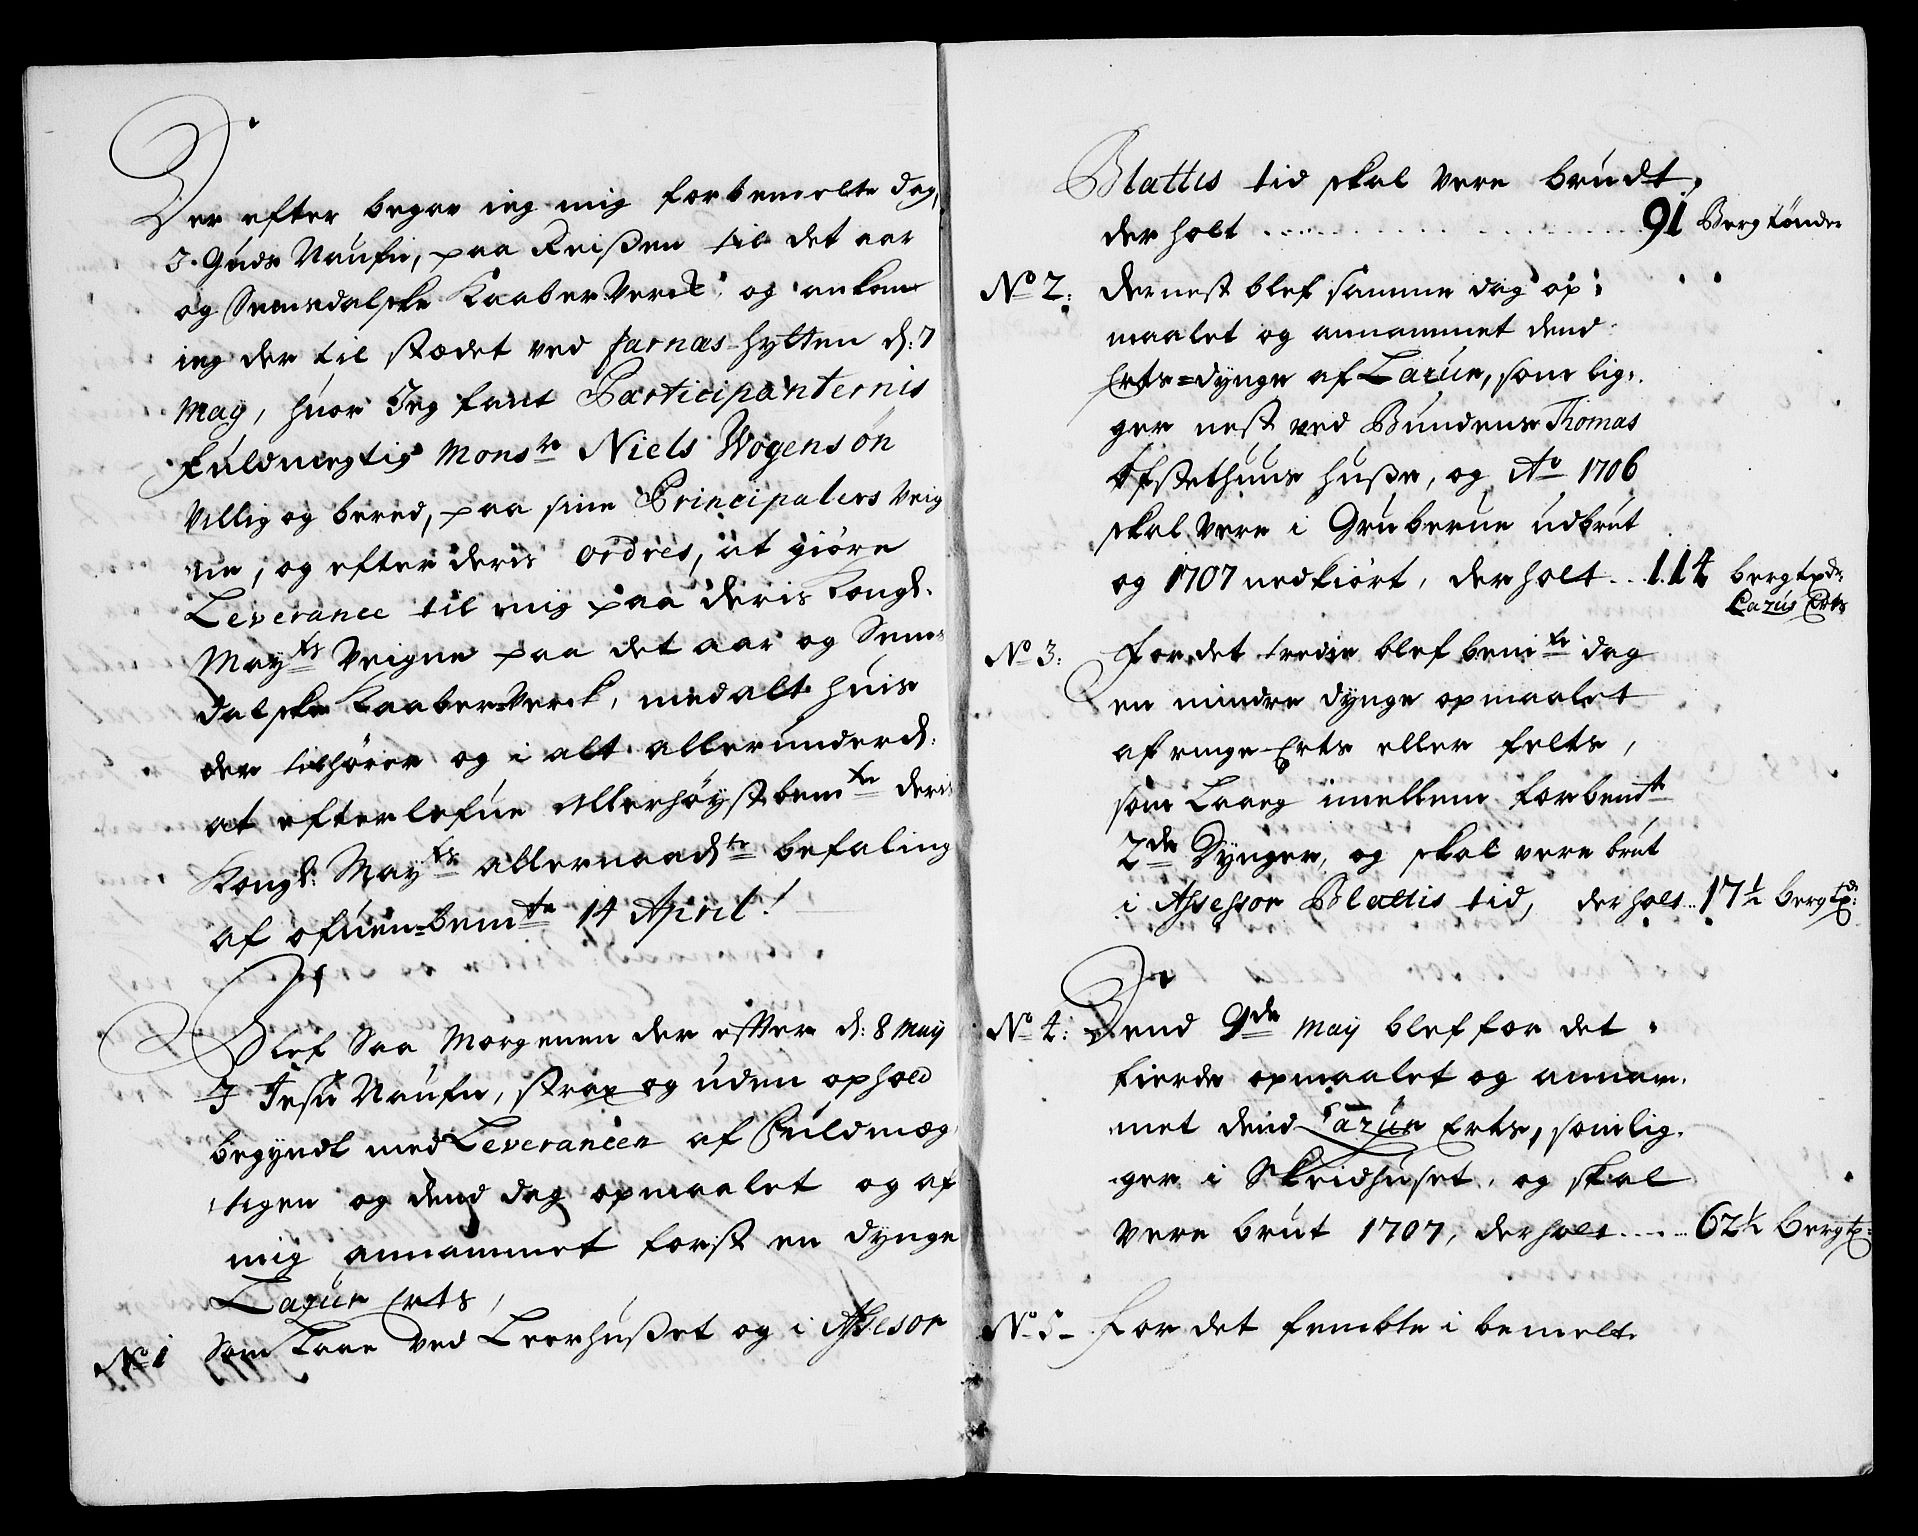 Der efter begav ieg mig forbemelte dag,
J. Guds Naufn, paa Reißen til det aar
og Semsdalske Kaaber Verck, og ankom
ieg der til stædet ved Jarnæs-hytten d: 7
May, huor Jeg fant Participanternis
fuldmegtig Mons:r Niels Wogensøn
Villig og bered, paa sine Principalers veig
ne, og efter deris ordres, at giöre
Leverance til mig paa deris Kongl.
May:ts Veigne paa det aar og Sems
dalske Kaaber-Verck, med alt huis
der tilhörer og i alt allerunderd:
at efterlefue Allerhöystbem:te deris
Kongl: May:ts allernaad:te befaling
af ofuen-bem:te 14 April!
Blef Saa Morgenen der effter d: 8 May
J Jesu Naufn, strax og uden ophold
begyndt med Leverancen af Fuldmæg
tigen og dend dag opmaalet og af
mig annammet forst en dynge
Lazur Erts,
No 1 Som Laae ved Leerhußet og i Assesor
Blattis tid skal vere brudt,
der holt . . . . . . 91 Berg tönder
No 2: dernest blef samme dag op:
maalet og annammet dend
Erts=dynge af Lazur, som lig:
ger nest ved Bundens Thomas
Ofstethuus huße, og Ao 1706
skal vere i Gruberne udbrut
og 1707 nedkiört, der holt . . 114 bergtpdr
Lazur Erts
No 3: For det tredie blef bem:te dag
en mindre dynge opmaalet
af ringe Erts eller felts,
som Laaeg imellem forbem:te
2de Dynger, og skal vere brut
i Assessor Blattis tid, der holt . . 17½ bergtp:
No 4: Dend 9de May blef for det
fierde opmaalet og annam:
met dend Lazur Erts, som lig:
ger i Skeidhuset, og skal
vere brut 1707, der holt . . . . 62½ bergtp:
No 5 – For det fembte i bemelte